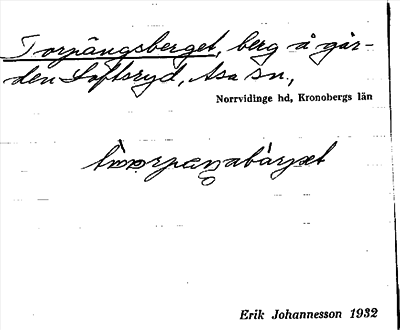 Torpängsberget, berg å går-
den Löftsryd, Asa sn.,
Norrvidinge hd, Kronobergs län
Erik Johannesson 1932